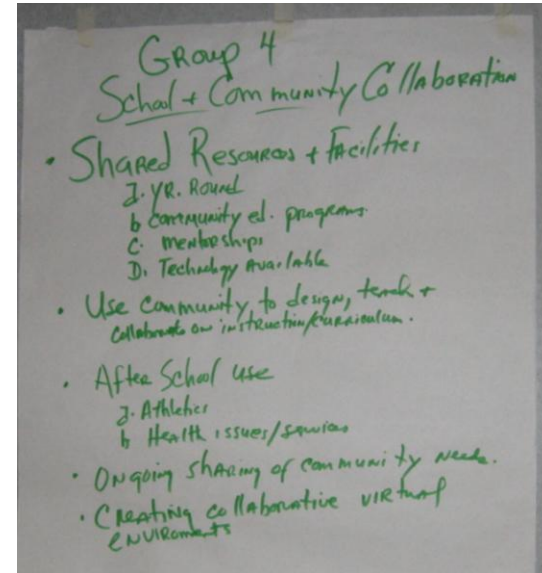 Group 4
School + Community Collaboration
• Shared Resources + Facilities
a. YR. Round
b Community ed. programs
C. mentorships
D. Technology Available
• Use community to design, teach +
collaborate on instruction/curriculum.
• After School use
a. Athletics
b Health issues/services
• Ongoing sharing of community needs.
• Creating collaborative virtual
enviroments